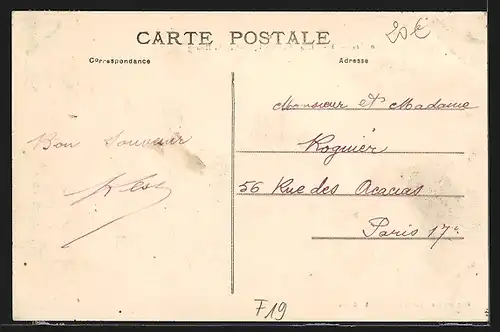 CARTE POSTALE
20€
Correspondance
Adresse
Bon Souvenir
Monsieur et Madame
Rognier
56 Rue des Acacias
Paris 17e
F19